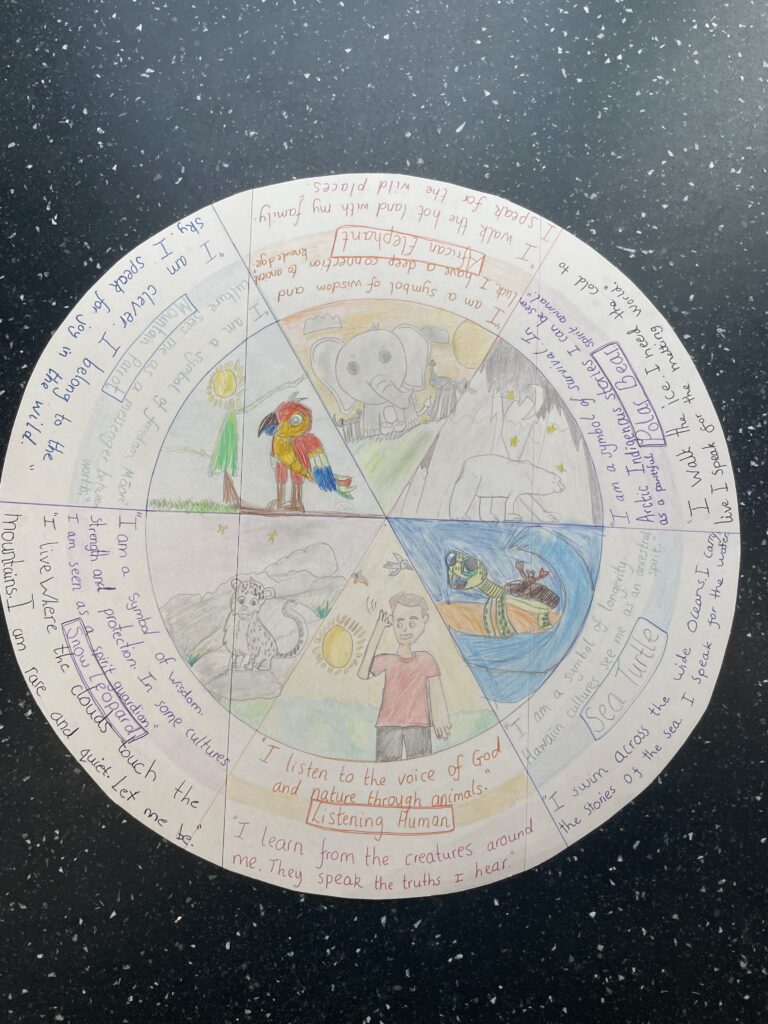 "I am a symbol of wisdom and
luck. I have a deep connection to ancient
knowledge."
African Elephant
"I walk the hot land with my family.
I speak for the wild places.
"I am a symbol of survival. In
Arctic Indigenous stories I can be seen
as a powerful spirit animal."
Polar Bear
"I walk the ice. I need the cold to
live I speak for the melting world."
"I am a symbol of longevity.
Hawaiin cultures see me as an ancestral
spirit."
Sea Turtle
"I swim across the wide Oceans. I carry
the stories of the sea. I speak for the water
"I listen to the voice of God
and nature through animals."
Listening Human
"I learn from the creatures around
me. They speak the truths I hear."
"I am a symbol of wisdom.
Strength and protection. In some cultures
I am seen as a spirit guardian"
Snow Leopard
"I live where the clouds touch the
mountains. I am rare and quiet. Let me be."
"I am a symbol of freedom Māori
culture sees me as a messenger between
worlds.
Mountain
Parrot
"I am clever I belong to the
sky. I speak for joy in the wild."